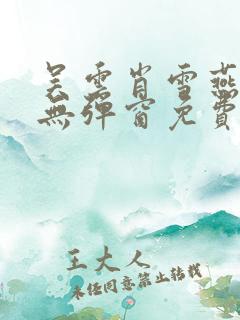 吴云肖雪燕
無彈窗免費
王大人
未经同意禁止转载